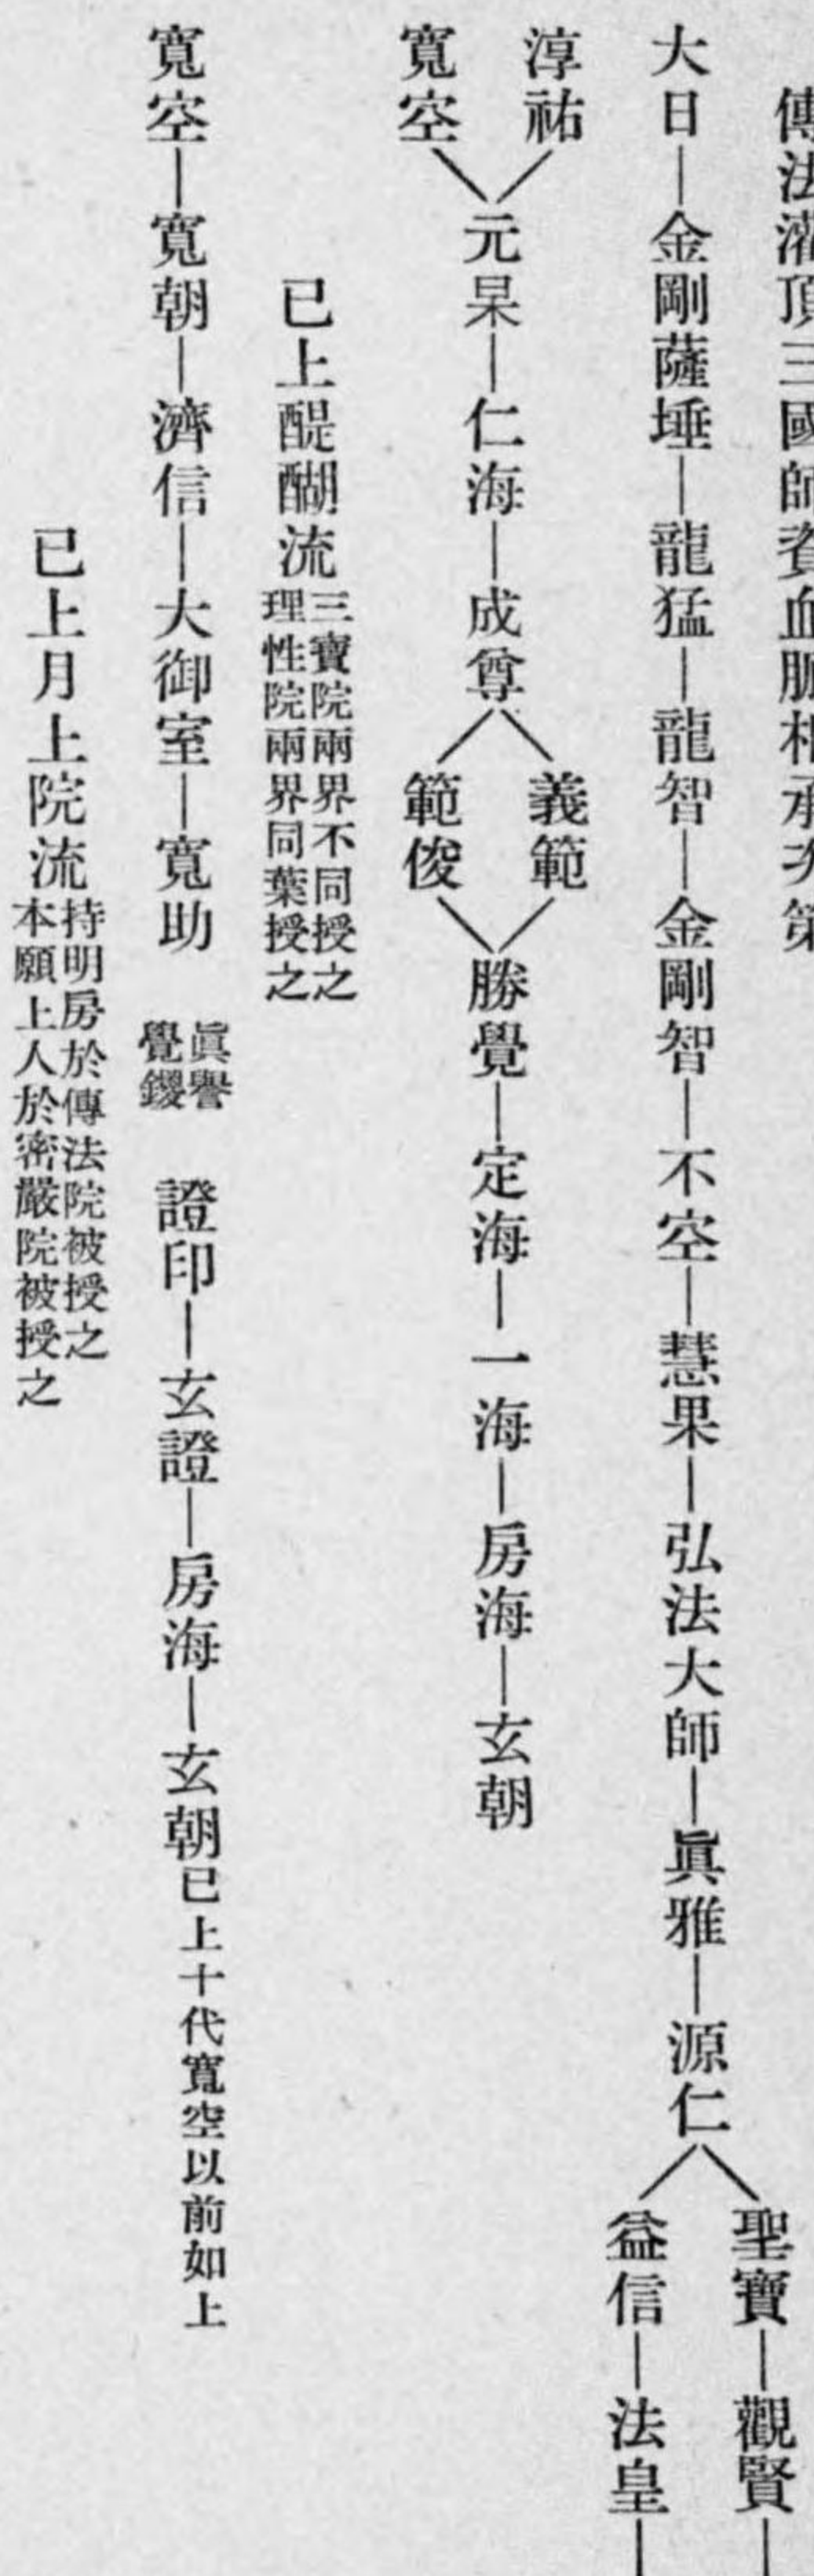 傳法灌頂三國師資血脈相承次第
大日―金剛薩埵―龍猛―龍智―金剛智―不空―慧果―弘法大師―眞雅―源仁
聖寶―觀賢―
益信―法皇―
淳祐
寬空
元杲―仁海―成尊
義範
範俊
勝覺―定海―一海―房海―玄朝
已上醍醐流
三寶院兩界不同授之
理性院兩界同葉授之
寬空―寬朝―濟信―大御室―寬助
眞譽
覺鑁
證印―玄證―房海―玄朝
已上十代寬空以前如上
已上月上院流
持明房於傳法院被授之
本願上人於密嚴院被授之